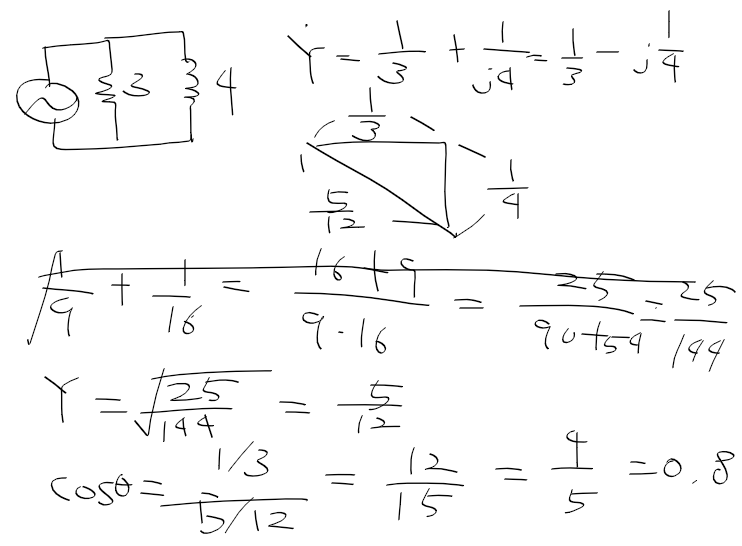 3
4
Y = 1/3 + 1/j4 = 1/3 - j 1/4
1/3
1/4
5/12
√(1/9 + 1/16 = (16+9)/(9·16) = 25/(90+54) = 25/144
Y = √(25/144) = 5/12
cosθ = (1/3)/(5/12) = 12/15 = 4/5 = 0.8